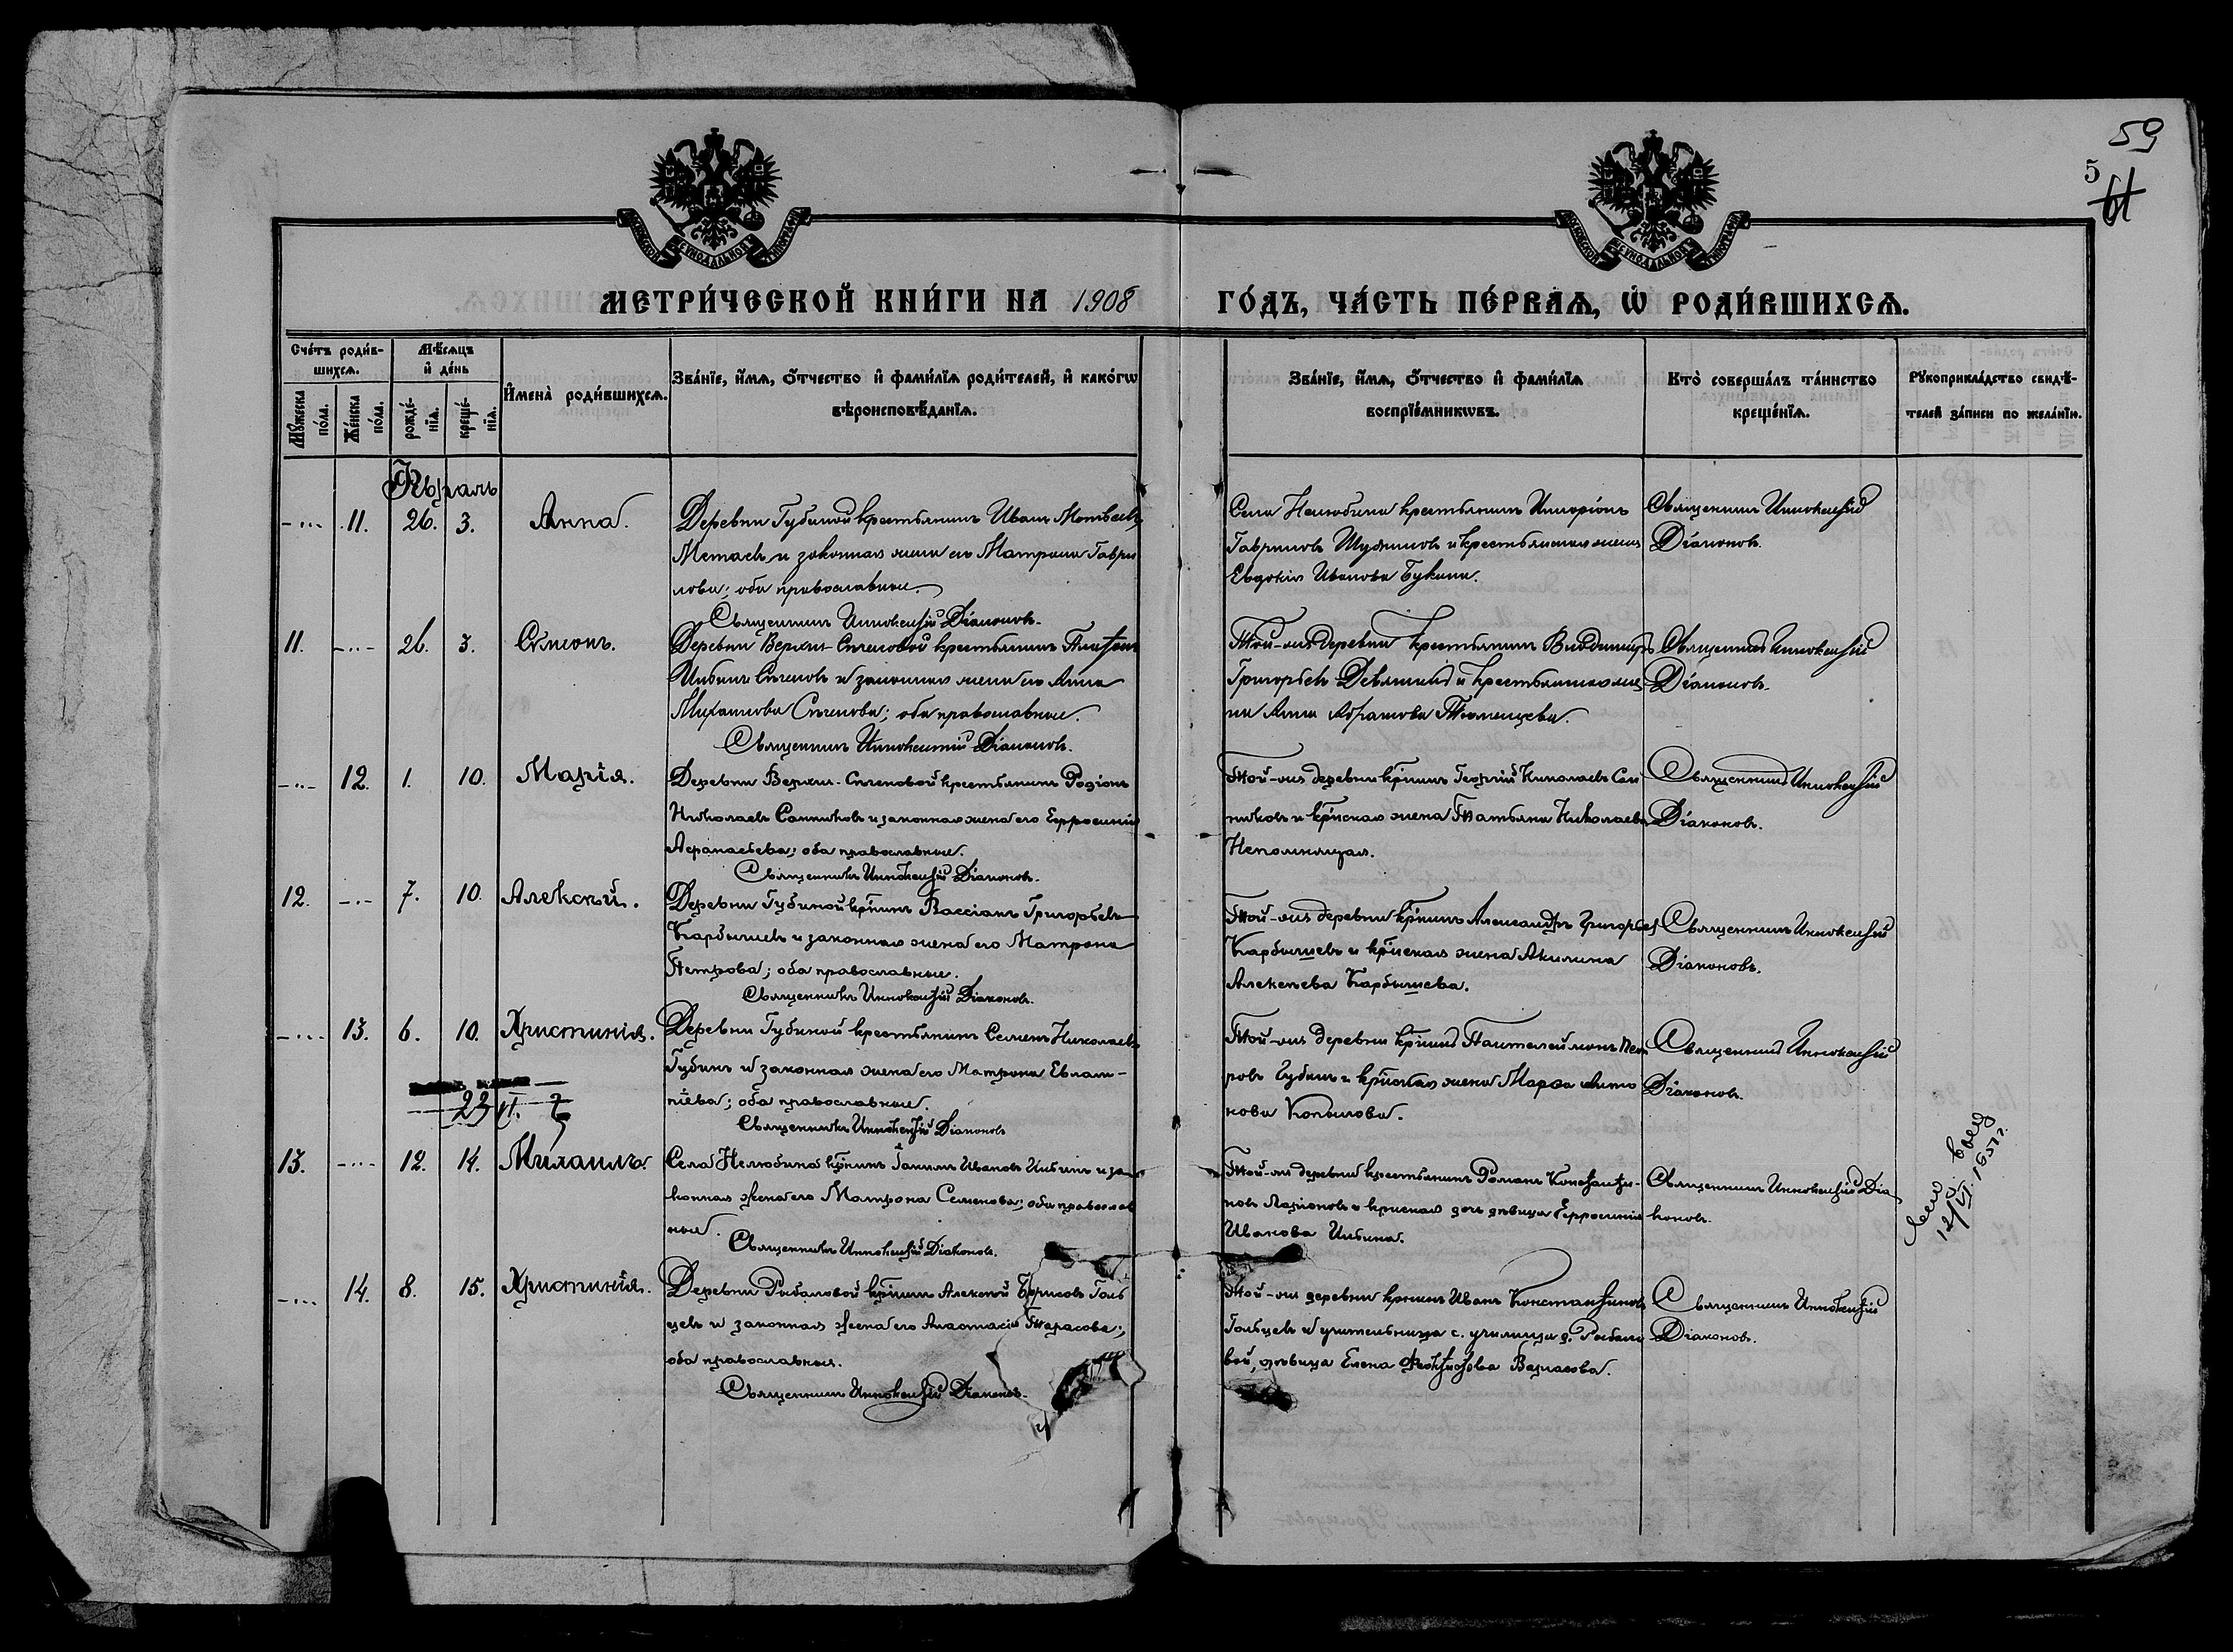 59
5
61
МОСКОВСКОЙ СѴНОДАЛЬНОЙ ТИПОГРАФІИ
МОСКОВСКОЙ СѴНОДАЛЬНОЙ ТИПОГРАФІИ
МЕТРИ́ЧЕСКОЙ КНИ́ГИ НА 1908
ГО́ДЪ, ЧА́СТЬ ПЕ́РВАѦ, Ѡ҆ РОДИ́ВШИХСѦ.
Сче́тъ роди́в-
шихсѧ.
Мꙋ́жеска
по́ла.
Же́нска
по́ла.
Мѣ́сѧцъ
и҆ де́нь
рожде́-
нїѧ.
креще́-
нїѧ.
И҆мена̀ роди́вшихсѧ.
Зва́нїе, и҆́мѧ, ѻ҆́тчество и҆ фами́лїѧ роди́телей, и҆ како́гѡ
вѣроисповѣ́данїѧ.
Зва́нїе, и҆́мѧ, ѻ҆́тчество и҆ фами́лїѧ
воспрїе́мникѡвъ.
Кто̀ соверша́лъ та́инство
креще́нїѧ.
Рꙋкоприкла́дство свидѣ́-
телей за́писи по жела́нїю.
Февраль
11. 26. 3. Анна.
Деревни Губиной крестьянинъ Иванъ Матвѣевъ
и законная жена его Матрона Гаври
лова; оба православные.
Священникъ Иннокентій Діаконовъ.
Села Нелюбина крестьянинъ Иларіонъ
Гавриловъ и крестьянская жена
Евдокія Иванова Букина.
Священникъ Иннокентій
Діаконовъ.
11. 26. 3. Сѵмеонъ.
Деревни Верхне-Сѣченовой крестьянинъ Платонъ
Сѣченовъ и законная жена его Анна
Михаилова Сѣченова; оба православные.
Священникъ Иннокентій Діаконовъ.
Той-же деревни крестьянинъ Владиміръ
Григорьевъ Девяшинъ и крестьянская же
на Анна Абрамова Тюменцева.
Священникъ Иннокентій
Діаконовъ.
12. 1. 10. Марія.
Деревни Верхне-Сѣченовой крестьянинъ Родіонъ
Николаевъ Санниковъ и законная жена его Евфросинія
оба православные.
Священникъ Иннокентій Діаконовъ.
Той-же деревни кр-нинъ Георгій Николаевъ Сан
никовъ и кр-нская жена Татьяна Николаева
Непомнящая.
Священникъ Иннокентій
Діаконовъ.
12. 7. 10. Алексѣй.
Деревни Губиной кр-нинъ Вассіанъ Григорьевъ
Карбышевъ и законная жена его Матрона
Петрова; оба православные.
Священникъ Иннокентій Діаконовъ.
Той-же деревни кр-нинъ Александръ Григорьев
Карбышевъ и кр-нская жена Акилина
Алексѣева Карбышева.
Священникъ Иннокентій
Діаконовъ.
13. 6. 10. Христинія.
Деревни Губиной крестьянинъ Семенъ Николаевъ
Губинъ и законная жена его Матрона Евлам-
піева; оба православные.
Священникъ Иннокентій Діаконовъ
Той-же деревни кр-нинъ Пантелеймонъ Пет
ровъ Губинъ и кр-нская жена Марѳа
нова Копылова.
Священникъ Иннокентій
Діаконовъ.
23 VI.
13. 12. 14. Михаилъ.
Села Нелюбина кр-нинъ Іакимъ Ивановъ и за
конная жена его Матрона Семенова; оба православ
ные.
Священникъ Иннокентій Діаконовъ.
Той-же деревни крестьянинъ Романъ Константи-
новъ Ларіоновъ и кр-нская дочь дѣвица Евфросинія
Иванова
Священникъ Иннокентій Діа
коновъ.
12/VI. 1957 г.
14. 8. 15. Христинія.
Деревни Рыбаловой кр-нинъ Алексѣй Борисовъ Голь
цевъ и законная жена его Анастасія Тарасова;
оба православные.
Священникъ Иннокентій Діаконовъ.
Той-же деревни кр-нинъ Иванъ Константиновъ
Гольцевъ и учительница с. училища д. Рыбало
вой, дѣвица Елена Варлакова.
Священникъ Иннокентій
Діаконовъ.